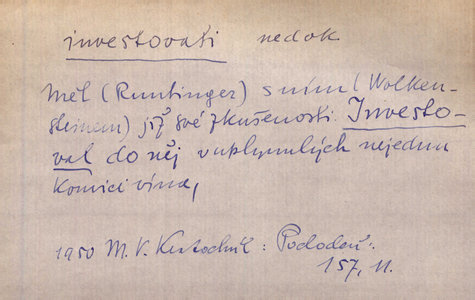 investovati nedok
měl (Runtinger) s ním (Wolken-
steinem) již své zkušenosti. Investo-
val do něj v uplynulých nejednu
konvici vína,
1950 M. V. Kratochvíl:
157, 11.